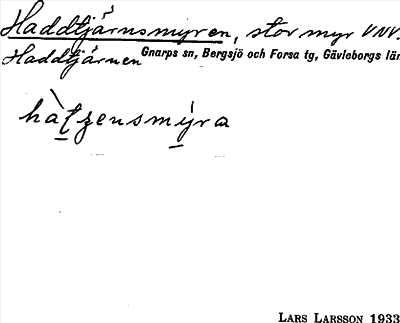 Haddtjärnsmyren, stor myr VNV.
Haddtjärnen Gnarps sn, Bergsjö och Forsa tg, Gävleborgs län
hàtzensmyra
LARS LARSSON 1933